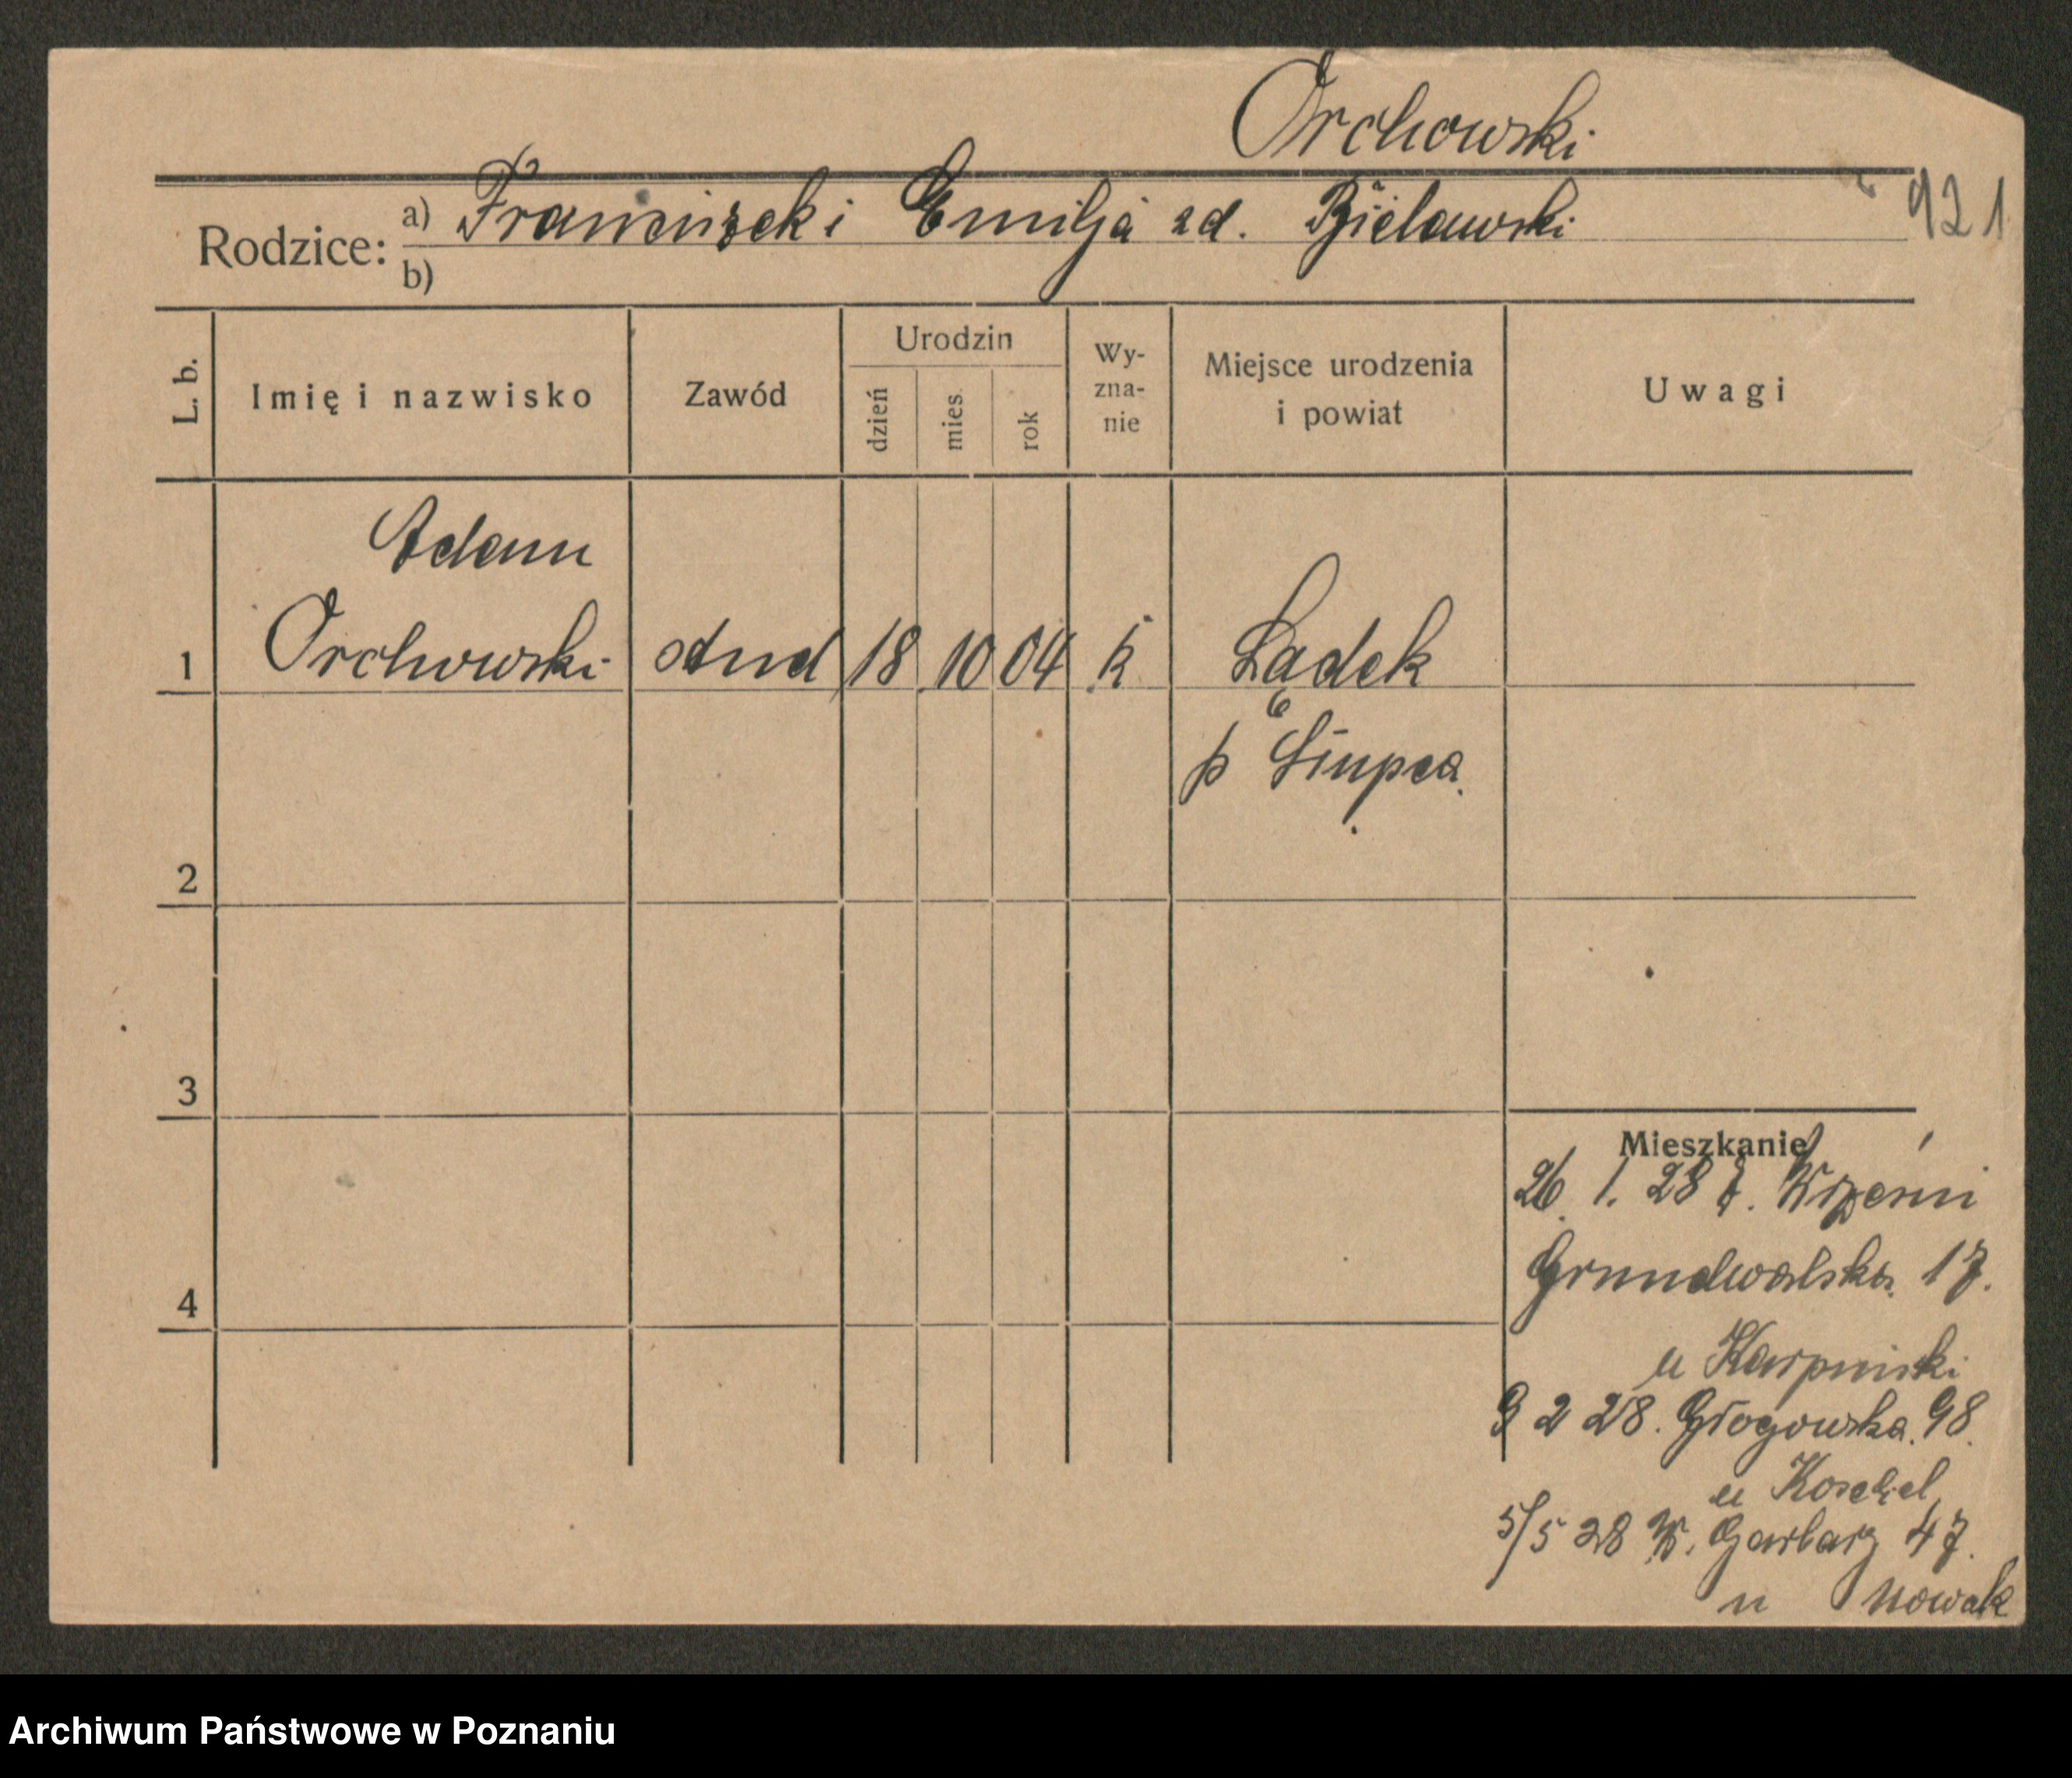 Orchowski
921
Rodzice: a) Franciszek i Emilja zd. Bielawski
b)
L. b.
Imię i nazwisko
Zawód
Urodzin
dzień
mies.
rok
Wy-
zna-
nie
Miejsce urodzenia
i powiat
Uwagi
Adam
1 Orchowski stud 18 10 04 k Lądek
p Słupca.
2
3
4
Mieszkanie
26. 1. 28 z. Wrześni
Grundwalska. 17.
u Karpinski
9 2 28. Głogowska. 98.
u
5/5 28 W. Garbary 47.
u Nowak
Archiwum Państwowe w Poznaniu